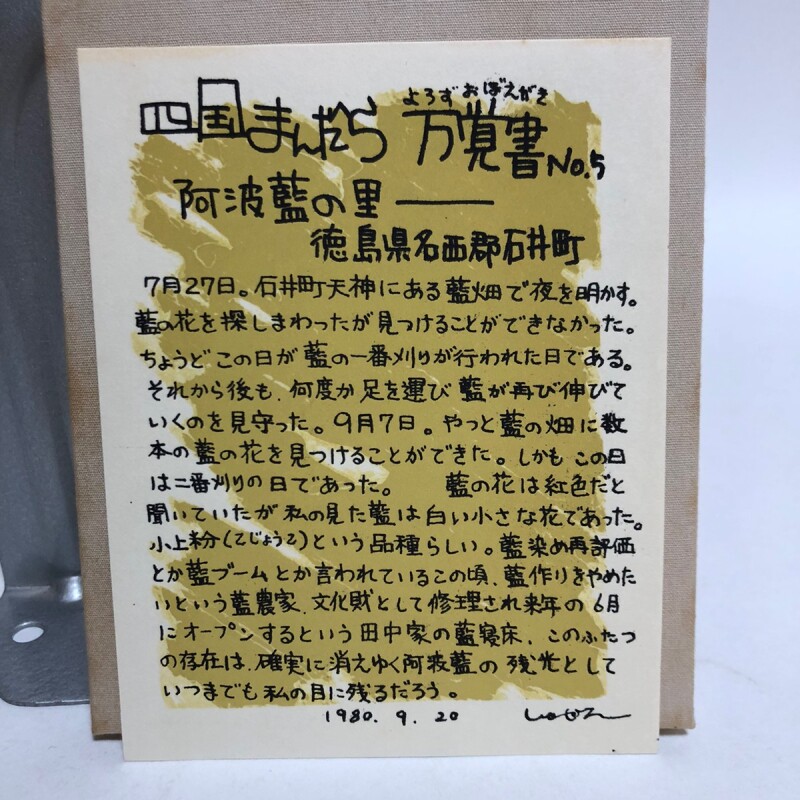 よろず おぼえがき
四国まんだら 万覚書 No.5
阿波藍の里 ―――
徳島県名西郡石井町
7月27日。石井町天神にある藍畑で夜を明かす。
藍の花を探しまわったが見つけることができなかった。
ちょうどこの日が藍の一番刈りが行われた日である。
それから後も、何度か足を運び藍が再び伸びて
いくのを見守った。9月7日。やっと藍の畑に数
本の藍の花を見つけることができた。しかもこの日
は二番刈りの日であった。　藍の花は紅色だと
聞いていたが私の見た藍は白い小さな花であった。
小上粉(こじょうこ)という品種らしい。藍染め再評価
とか藍ブームとか言われているこの頃、藍作りをやめた
いという藍農家、文化財として修理され来年の6月
にオープンするという田中家の藍寝床、このふたつ
の存在は、確実に消えゆく阿波藍の残光として
いつまでも私の目に残るだろう。
1980. 9. 20